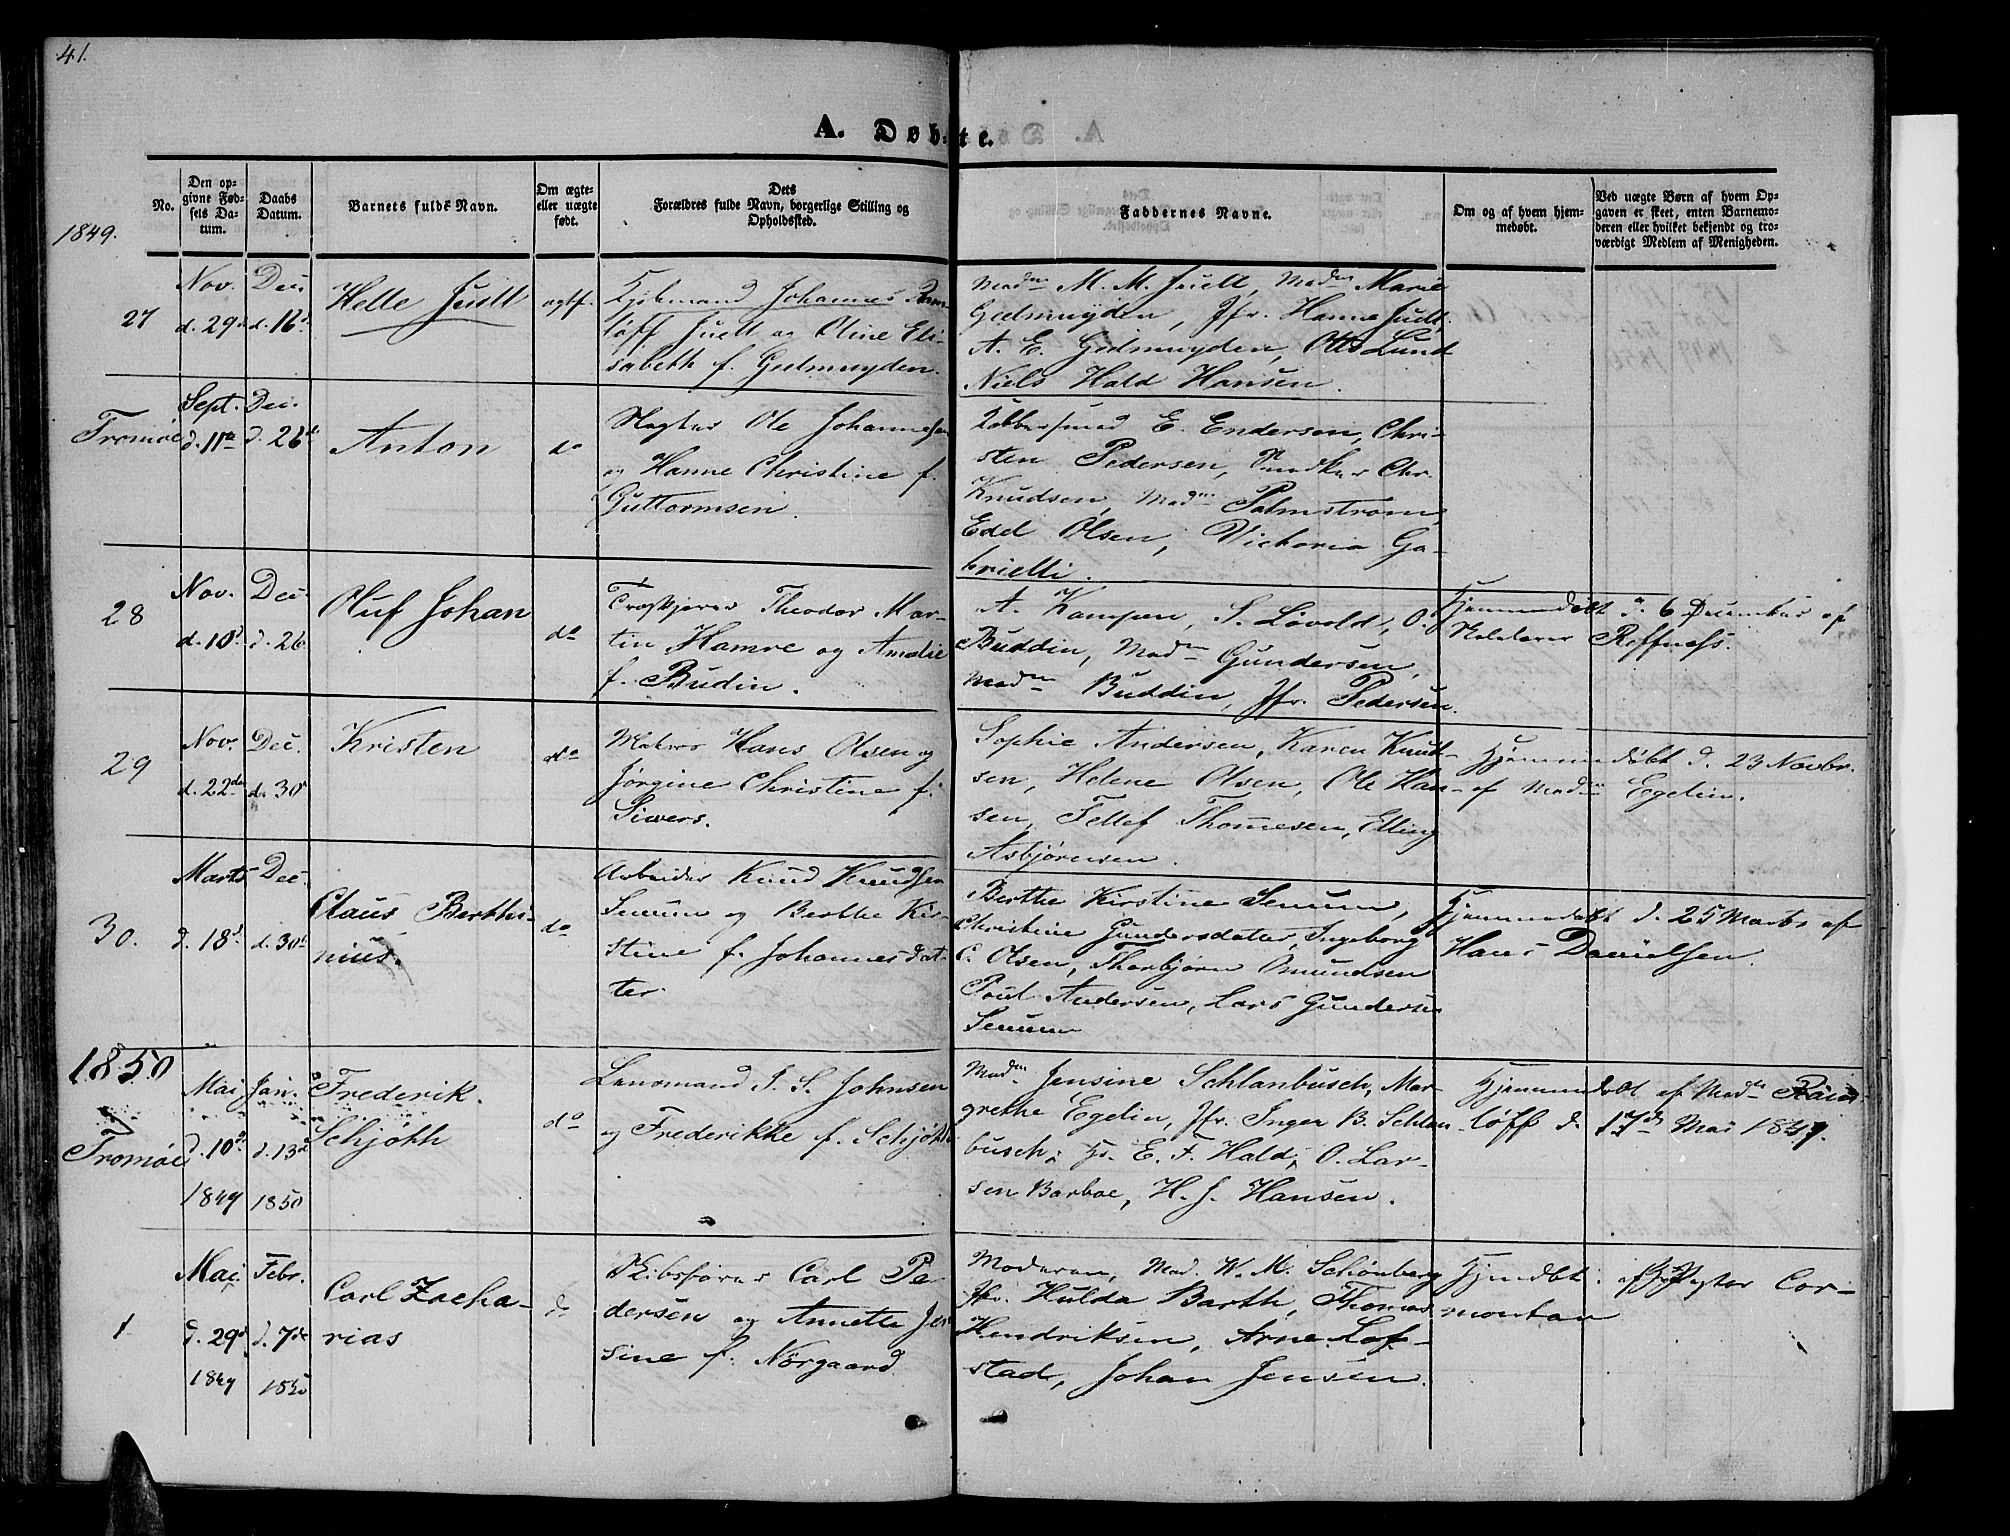 41.
A. Døbte.
No.
Den op-
givne Fød-
sels Da-
tum.
Daabs
Datum.
Barnets fulde Navn.
Om ægte-
eller uægte
født.
Dets
Forældres fulde Navn, borgerlige Stilling og
Opholdssted.
Faddernes Navne.
Om og af hvem hjem-
medøbt.
Ved uægte Børn af hvem Op-
gaven er skeet, enten Barnemo-
deren eller hvilket bekjendt og tro-
værdigt Medlem af Menigheden.
1849.
27
Nov.
d. 29d
Dec.
d. 16d
Helle Juell
ægtf.
Kjøbmand Johannes Ram-
løff Juell og Oline Eli-
sabeth f. Gedmuyden.
Madm M. M. Juell, Madm Marie
Gedmuyden, Jfr. Hanne Juell,
A. E. Gedmuyden, Otto Lund
Niels Hald Hansen.
Tromøe
Sept.
d. 11te
Dec.
d. 26d
Anton
do
Slagter Ole Johannesen
og Hanne Christine f.
Guttormsen.
Kobbersmed E. Endersen, Chri-
sten Pedersen, Chr.
Knudsen, Madm Palmstrøm
Edel Olsen, Victoria Ga-
brielli.
28
Nov.
d. 10d
Dec.
d. 26
Oluf Johan
do
Theodor Mar-
tin Hamre og Amalie
f. Budin.
A. Kampen, S. Løvold, O.
Buddin, Madm Gundersen,
Madm Buddin, Jfr. Pedersen.
Hjemmedøbt d. 6 December af
Reffness.
29
Nov.
d. 22den
Dec.
d. 30d
Kristen
do
Matros Hans Olsen og
Jørgine Christine f.
Siwers.
Sophie Andersen, Karen Knut-
sen, Helene Olsen, Ole Han-
sen, Tellef Thomesen, Elling
Asbjørnsen.
Hjemmedøbt d. 23 Novbr.
af Madm Egelin.
30.
Marts
d. 18d
Dec.
d. 30d
Claus Berthi-
nius.
do
Arbeider Knud Knudsen
Senum og Berthe Kir-
stine f. Johannesdat-
ter
Berthe Kirstine Senum,
Christine Gundersdatter, Ingeborg
C. Olsen, Thorbjørn Omundsen
Poul Andersen, Lars Gundersen
Senum
Hjemmedøbt d. 25 Marts af
Hans Danielsen.
1850
Tromøe
Mai
d. 10d
1849
Jan.
d. 13d
1850
Frederik
Schjøth
do
Lensmand J. S. Johnsen
og Frederikke f. Schjøth
Madm Jensine Schlanbusch, Mar-
grethe Egelin, Jfr. Inger B. Schlan-
busch, Hr. E. F. Hald, O. Lar-
sen Barboe, H. J. Hansen.
Hjemmedøbt af Madm
løff d. 17d Mai 1849.
1
Mai
d. 29d
1849
Febr.
d. 7de
1850
Carl Zacha-
rias
do
Skibsfører Carl Pe-
dersen og Annette Jen-
sine f. Nørgaard
Moderen, Mad. W. M. Schønberg
Jfr. Hulda Barth, Thomas
Hendriksen, Arne Lof-
stad, Johan Jensen.
Hjmdbt. af Pastor Cor-
montan